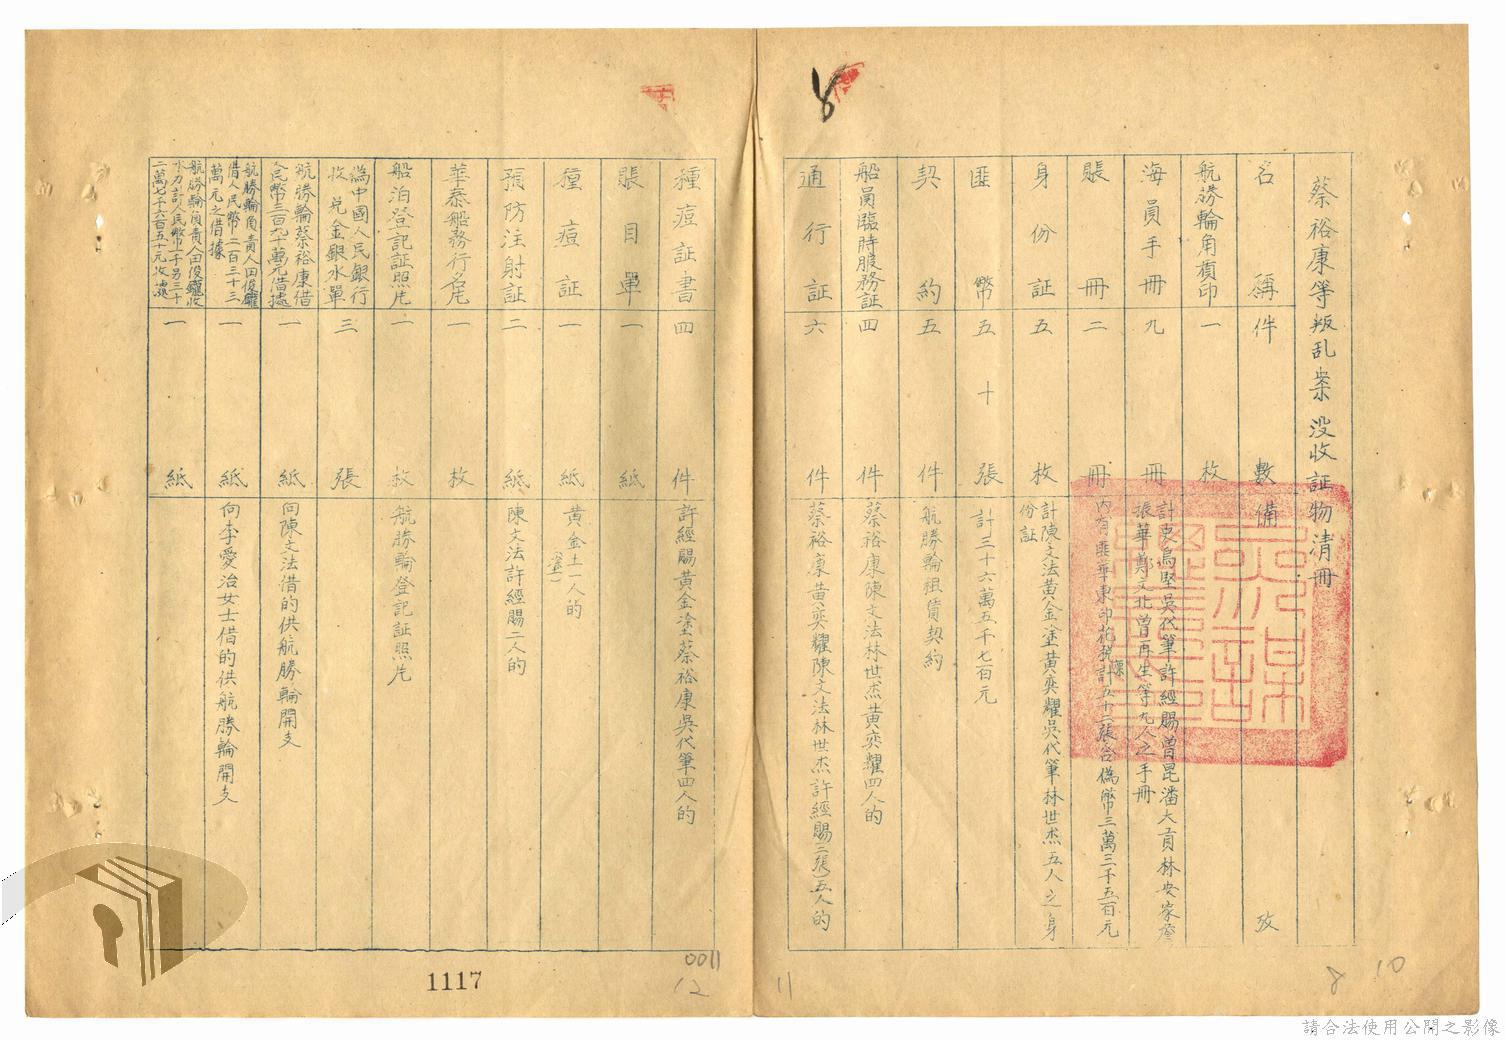 蔡裕康等叛乱案没收証物清冊
名稱 件數 備攷
航勝輪角質印 一枚
海員手冊 九冊 計吏烏堅吳代筆許經賜曾昆潘大貢林安家詹
振華鄭文北曾再生等九人之手冊
賬冊 二冊 內有匪華東印花稅票計五十二張合偽幣三萬三千五百元
身份証 五枚 計陳文法黃金塗黃奕耀吳代筆林世杰五人之身
份証
匪幣 五十張 計三十六萬五千七百元
契約 五件 航勝輪租賃契約
船員臨時服務証 四件 蔡裕康陳文法林世杰黃奕耀四人的
通行証 六件 蔡裕康黃奕耀陳文法林世杰許經賜(二張)五人的
種痘証書 四件 許經賜黃金塗蔡裕康吳代筆四人的
賬目單 一紙
種痘証 一紙 黃金土一人的
預防注射証 二紙 陳文法許經賜二人的
華泰船務行名片 一枚
船泊登記証照片 一枚 航勝輪登記証照片
偽中國人民銀行
收兌金銀水單 三張
航勝輪蔡裕康借
人民幣三百九十萬元借據 一紙 向陳文法借的供航勝輪開支
航勝輪負責人田俊
借人民幣二百三十三
萬元之借據 一紙 向李愛治女士借的供航勝輪開支
航勝輪負責人田俊收
水力計人民幣一千另三十
二萬七千六百五十元收據 一紙
8
1117
0011
12
11
8
10
請合法使用公開之影像